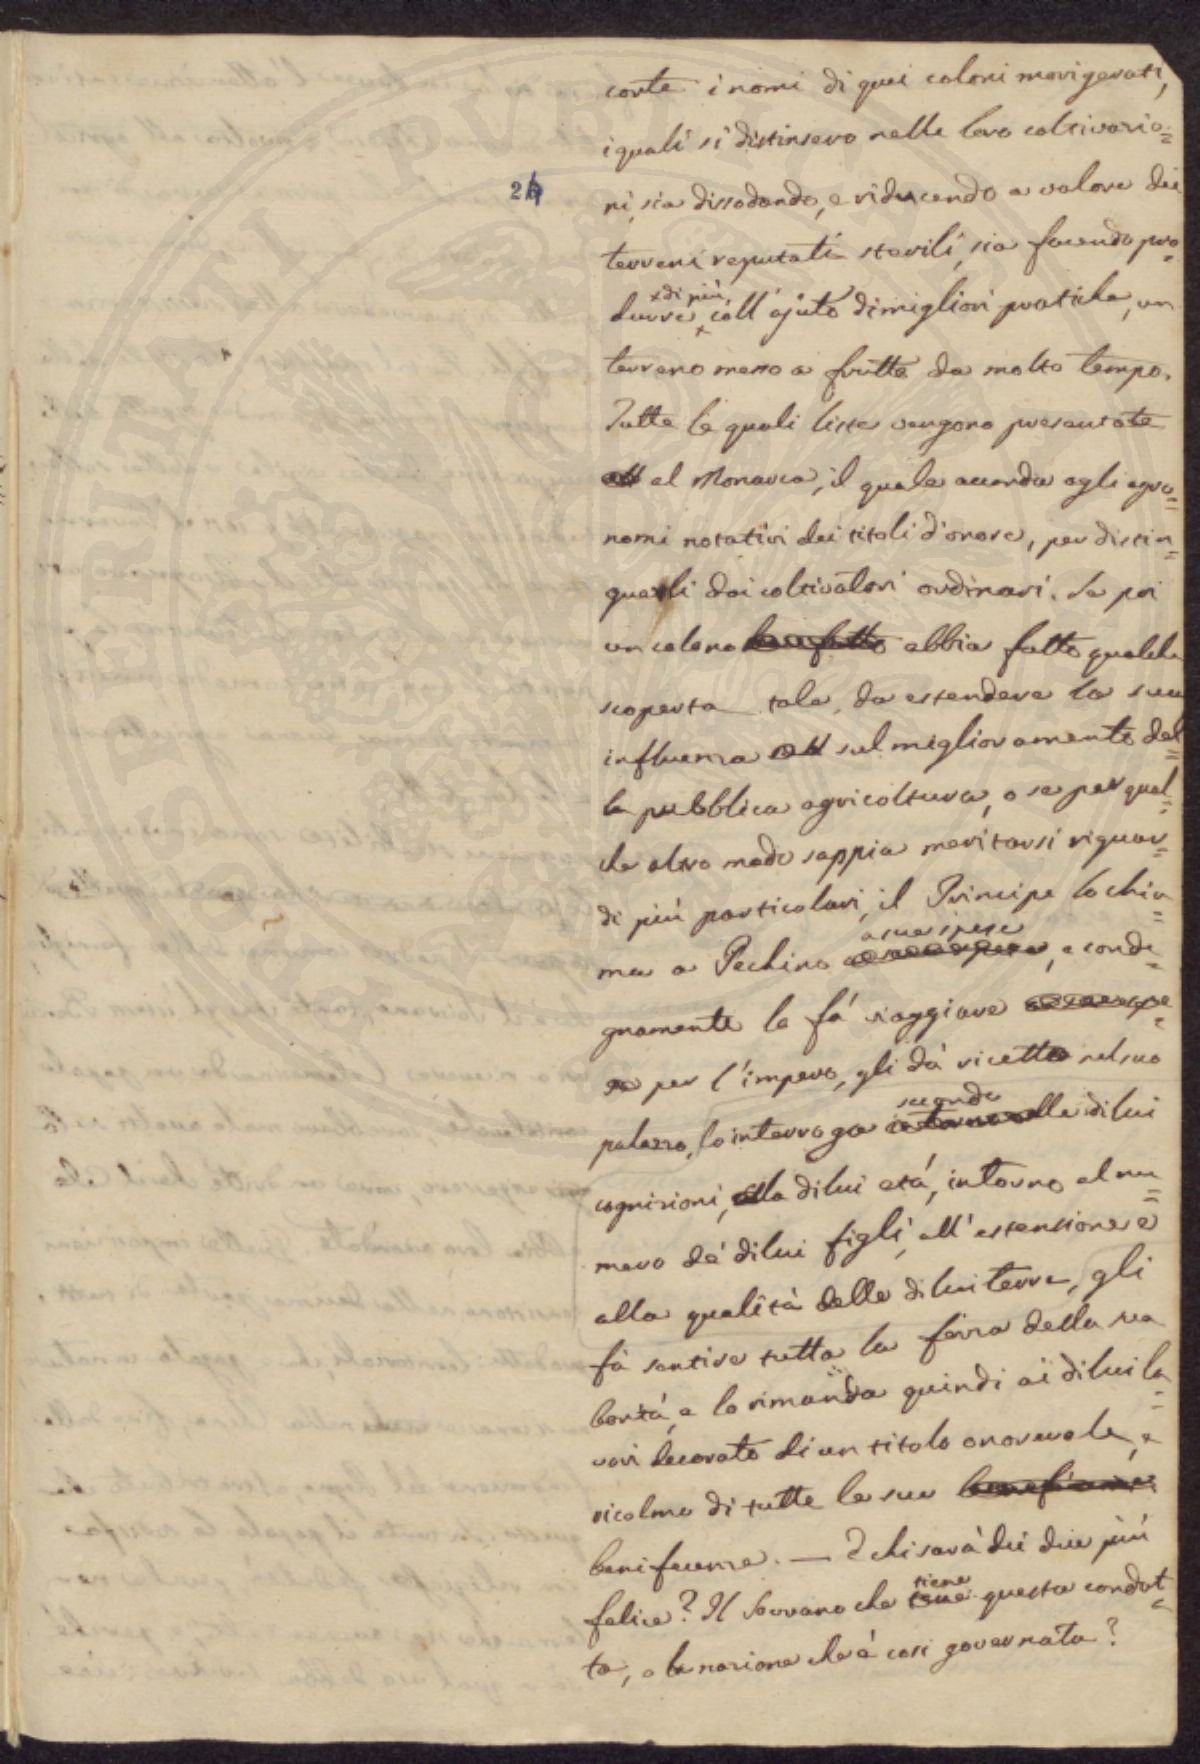 24
corte i nomi di quei coloni morigerati,
i quali si distinsero nelle loro coltivazio=
ni, sia dissodando, e riducendo a valore dei
terreni reputati sterili, sia facendo pro=
durre di più, coll' ajuto di migliori pratiche, un
terreno messo a frutto da molto tempo.
Tutte le quali liste vengono presentate
al Monarca, il quale accorda agli agro=
nomi notativi dei titoli d'onore, per distin=
guerli dai coltivatori ordinari. Se poi
un colono abbia fatto qualche
scoperta tale, da estendere la sua
influenza sul miglioramento del=
la pubblica agricoltura, o se per qual=
che altro modo sappia meritarsi riguar=
di più particolari, il Principe lo chia=
ma a Pechino a sue spese, e conde=
gnamente lo fá viaggiare
per l'impero, gli dà ricetto nel suo
palazzo, lo interroga secondo le di lui
cognizioni, la di lui etá, intorno al nu=
mero de' di lui figli, all' estensione e
alla qualità delle di lui terre, gli
fà sentire tutta la forza della sua
bontá, e lo rimanda quindi ai di lui la=
vori decorato di un titolo onorevole, e
ricolmo di tutte le sue
benificenze. — E chi sarà dei due più
felice? Il Sovrano che tiene questa condot=
ta, o la nazione che è così governata?